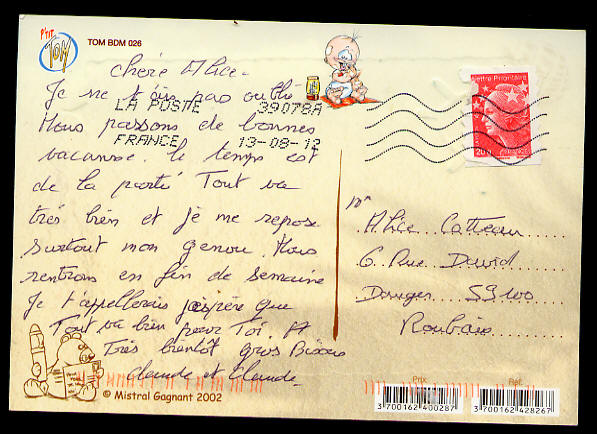 P'TIT
TOM
TOM BDM 026
Chère Alice.
Je ne t'ai pas oublié
LA POSTE 39078A
Nous passons de bonnes
FRANCE 13-08-12
vacanse. le temps est
de la partie Tout va
très bien et je me repose
surtout mon genou. Nous
rentrons en fin de semaine
Je t'appellerais j'espère que
Tout va bien pour Toi. A
Très bientôt gros Bisous
Claude et Claude
© Mistral Gagnant 2002
Lettre Prioritaire
20g
France
Alice Catteau
6 Rue David
59100
Roubaix
Prix
3 700162 400287
Réf.
3 700162 428267